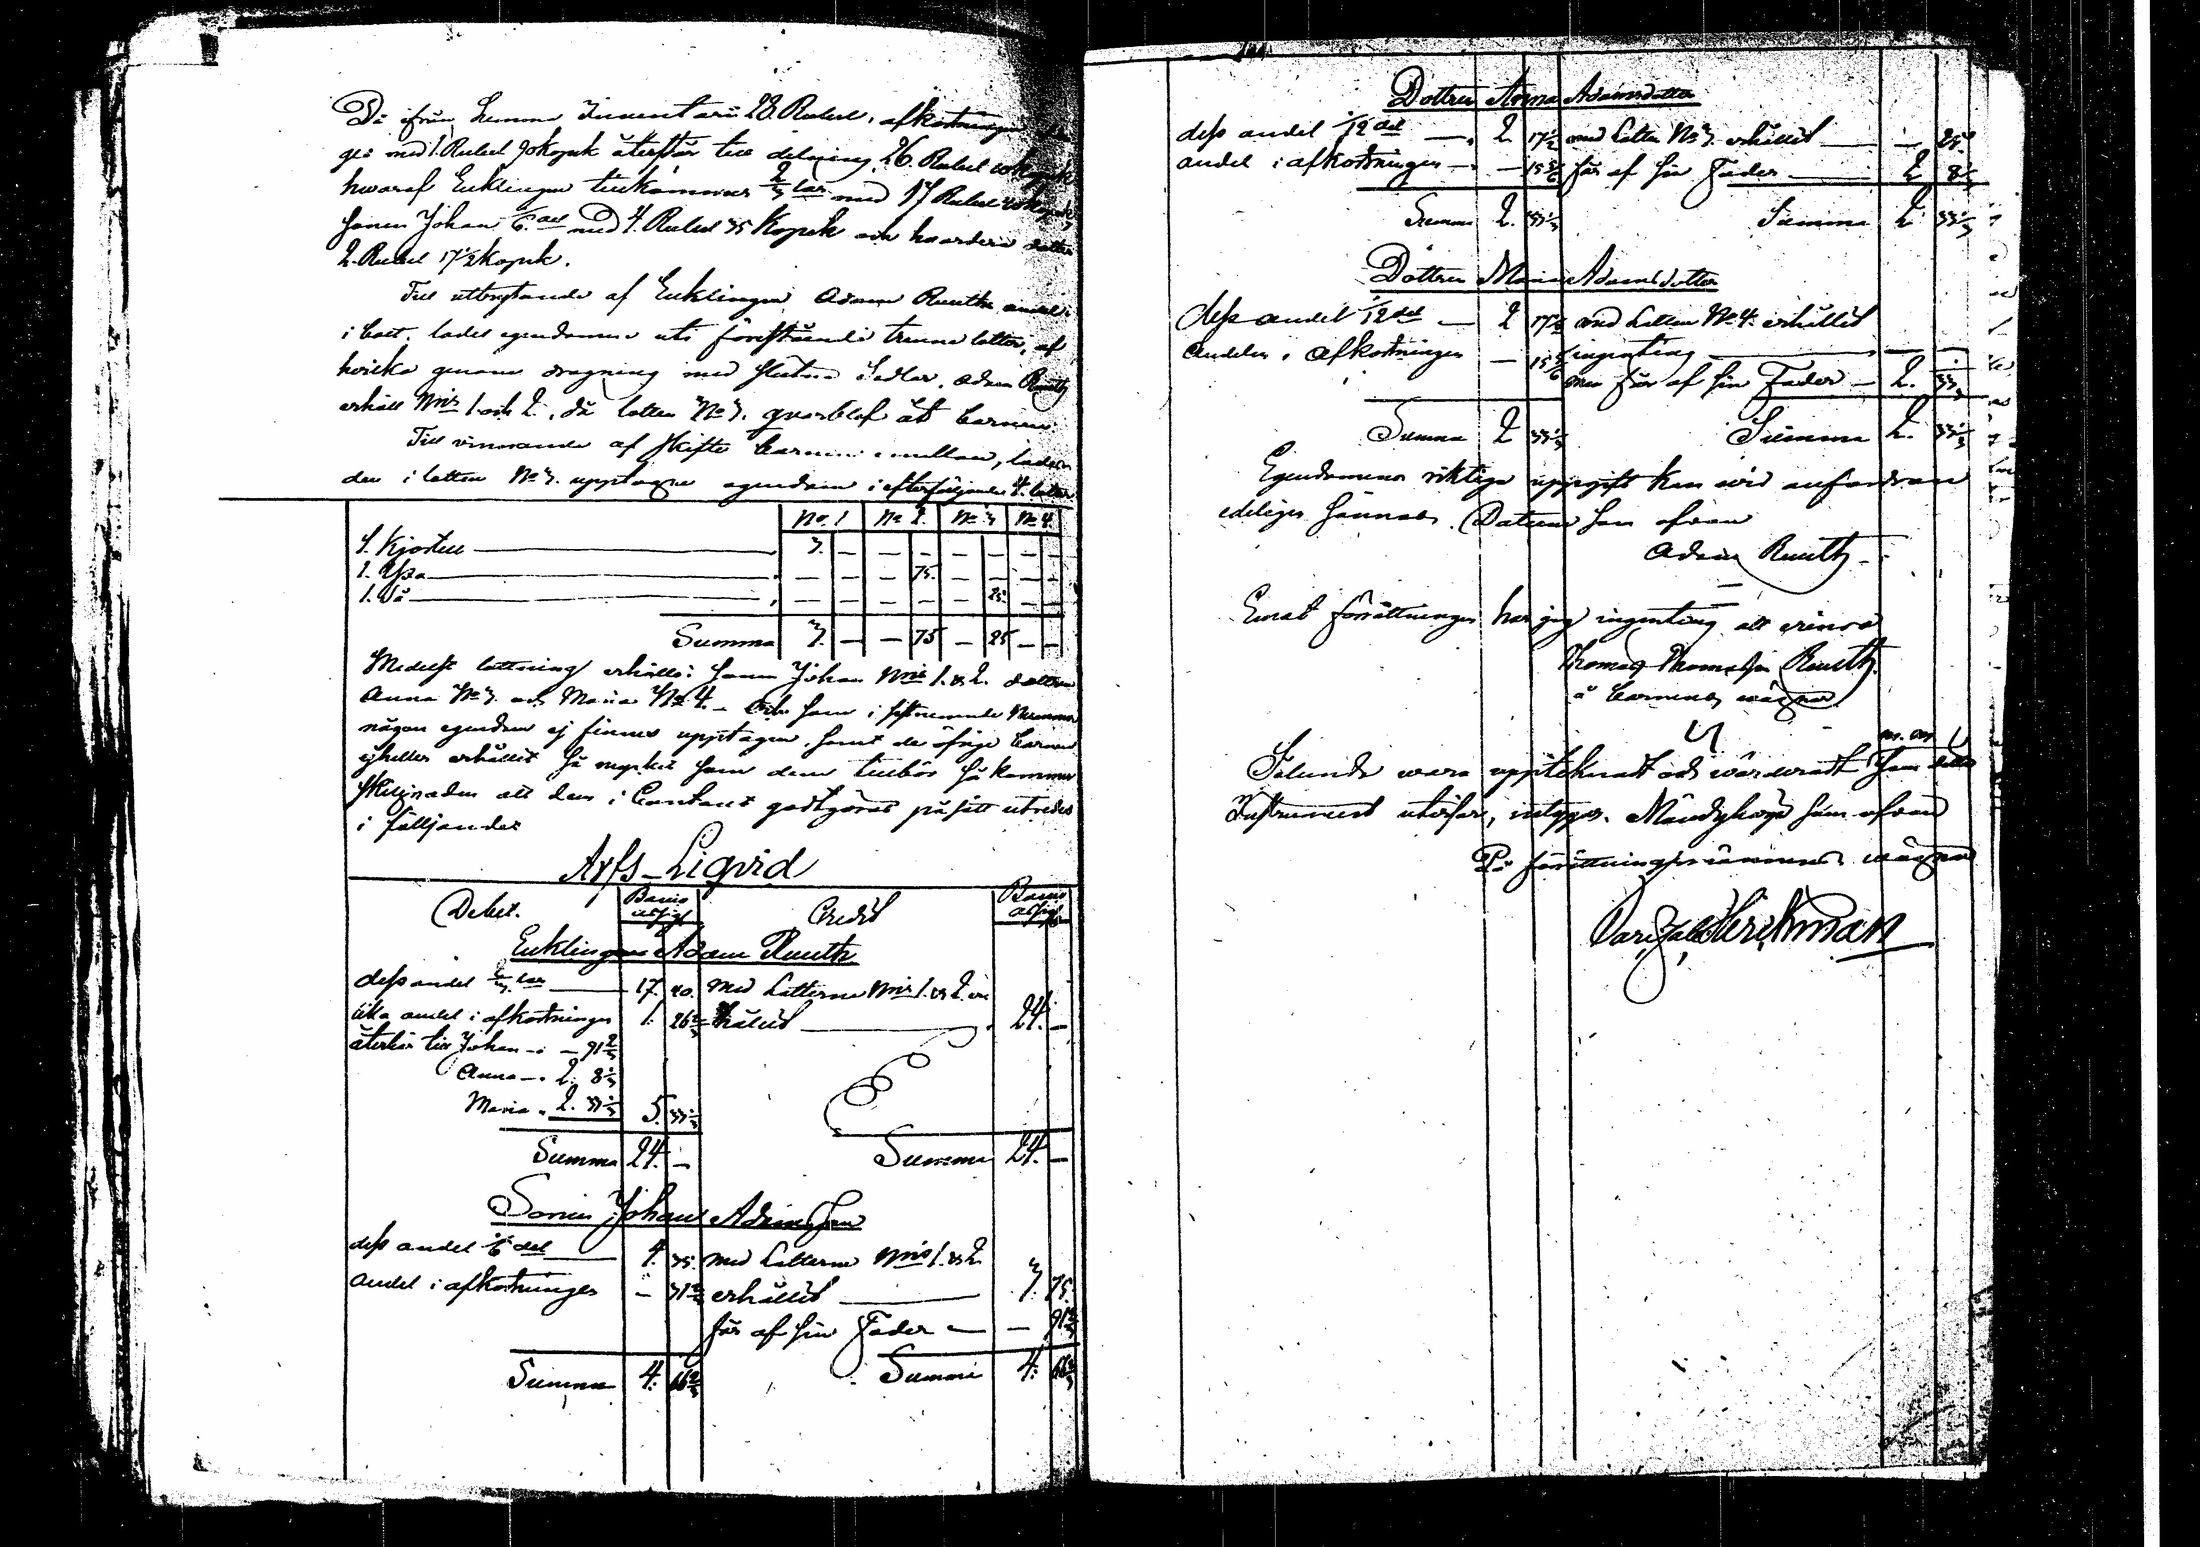 Då ifrån Summa Inventarii 28. Rubel, afkortningen
gå med 1. Rubel 90 kopek återstår till delning 26. Rubel 10 kopek
hwaraf Enklingen tillkommer 2/3 lar med 17 Rubel 40 kopek
Sonen Johan 1/6 del med 4. Rubel 35 Kopek och hwardera dotter
2. Rubel 17 1/2 kopek.
Till utbrytande af Enklingen Adam Ruuths andel
i boet, lades egendomen uti föreståendе trenne lotter, af
hvilka genom dragning med slutna Sedlar, Adam Ruuth
erhöll Nris 1. och 2., då lotten No 3. qvarblef åt barnen.
Till vinnande af skifte barnen emellan, lades
den i lotten No 3. upptagne egendom i efterföljande 4. lotter
No. 1 No 2. No 3 No 4.
1. Kjortell 3. — — — — — — —
1. Yxa — — — 75. — — — —
1. Så — — — — — 25. — —
Summa 3. — — 75 — 25 — —
Medelst lottning erhöllo: Sonen Johan Nris 1. & 2. dottren
Anna No 3. och Maria No 4. — Och som i sistnemnde Nummer
någon egendom ej finnes upptagen, samt de öfrige barnen
ej heller erhållit så mycket som dem tillbör så kommer
skillnaden att dem i Contant godtgöras på sätt utredes
i följande:
Arfs-Liqvid
Debet. Banco assign Credit Banco assign
Enklingen Adam Ruuth
dess andel 2/3 lar 17. 40. med Lotterne Nris 1. & 2. er
lika andel i afkortningen 1. 26 2/3 hållit 24. —
återbär till Johan — 91 2/3
Anna — 2. 8 1/3
Maria 2. 33 1/3 5. 33 1/3
Summa 24. — Summa 24. —
Sonen Johan Adamsson
dess andel 1/6 del 4. 35. med Lotterne Nris 1. & 2.
andel i afkortningen — 31 2/3 erhållit 3. 75.
får af sin Fader — — 91 2/3
Summa 4. 66 2/3 Summa 4. 66 2/3
Dottren Anna Adamsdotter
dess andel 1/12 del — 2 17 1/2 med Lotten No 3. erhållit — — 25.
andel i afkortningen — — 15 5/6 får af sin Fader — 2 8 1/3
Summa 2. 33 1/3 Summa 2 33 1/3
Dottren Maria Adamsdotter
dess andel 1/12 del — 2 17 1/2 med Lotten No 4. erhållit
andelen i afkortningen — 15 5/6 ingenting — — —
men får af sin Fader — 2. 33 1/3
Summa 2 33 1/3 Summa 2. 33 1/3
Egendomens riktiga uppgift kan wid anfordran
edeligen sannas. Datum som ofvan
Adam Ruuth
Emot förrättningen har jag ingenting att erinra
Thomas Thomasson Ruuth
å barnens wägnar
Sålunda wara upptecknadt och wärderadt som detta
Instrument utvisar, intygar. som ofvan
På förrättningsmännens wägnar